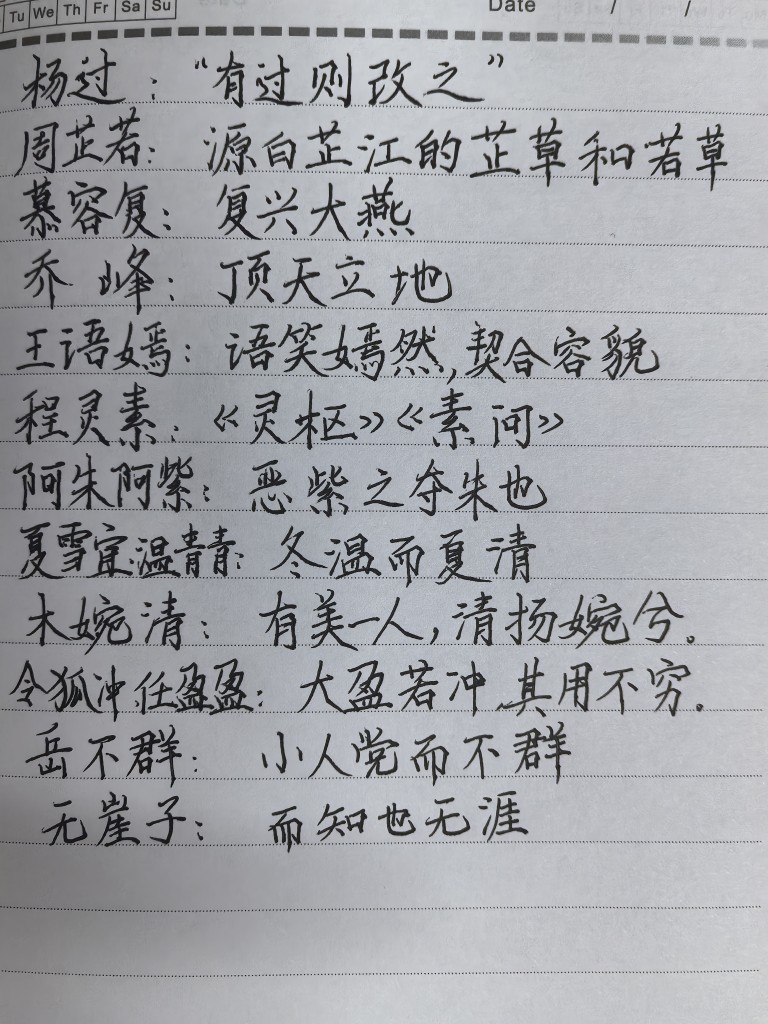 Tu We Th Fr Sa Su Date / /
杨过：“有过则改之”
周芷若：源自芷江的芷草和若草
慕容复：复兴大燕
乔峰：顶天立地
王语嫣：语笑嫣然,契合容貌
程灵素：《灵枢》《素问》
阿朱阿紫：恶紫之夺朱也
夏雪宜,温青青：冬温而夏清
木婉清：有美一人,清扬婉兮。
令狐冲,任盈盈：大盈若冲,其用不穷.
岳不群：小人党而不群
无崖子：而知也无涯